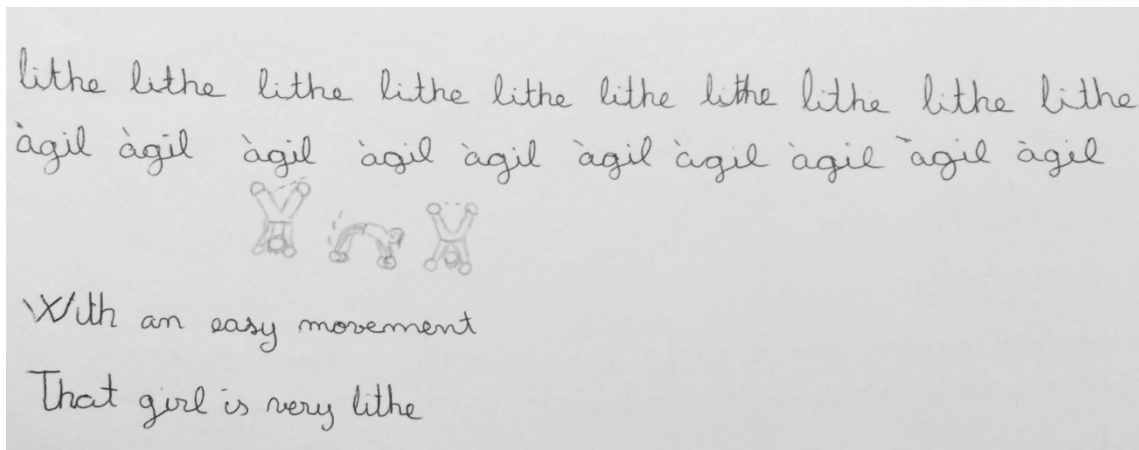 lithe lithe lithe lithe lithe lithe lithe lithe lithe lithe
àgil àgil àgil àgil àgil àgil àgil àgil àgil àgil
With an easy movement
That girl is very lithe